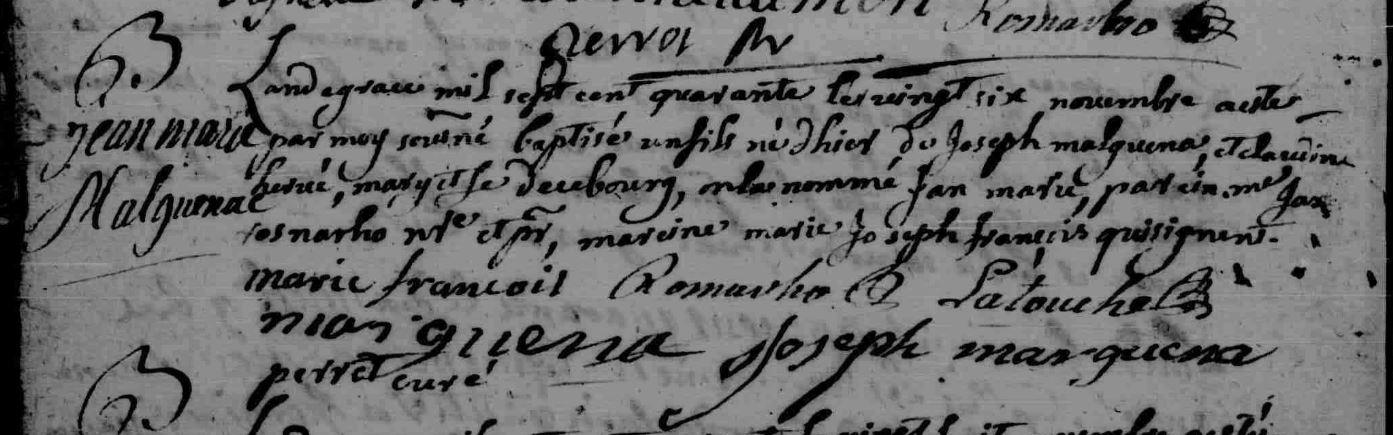 Romarho
perrot
B
Jean marie
Malquenac
Landegrace mil sept cent quarante le vingt six novembre aeste
par moy sousné baptisé unfils né dhier de Joseph malquena, et claudine
hervé, mary et fe decebourg, onla nommé Jan marie, parein me Jan
rosnarho nre et pr, mareine marie Joseph françois quisignent.
marie françois Romarho Latouche
marquena Joseph marquena
perret curé
B